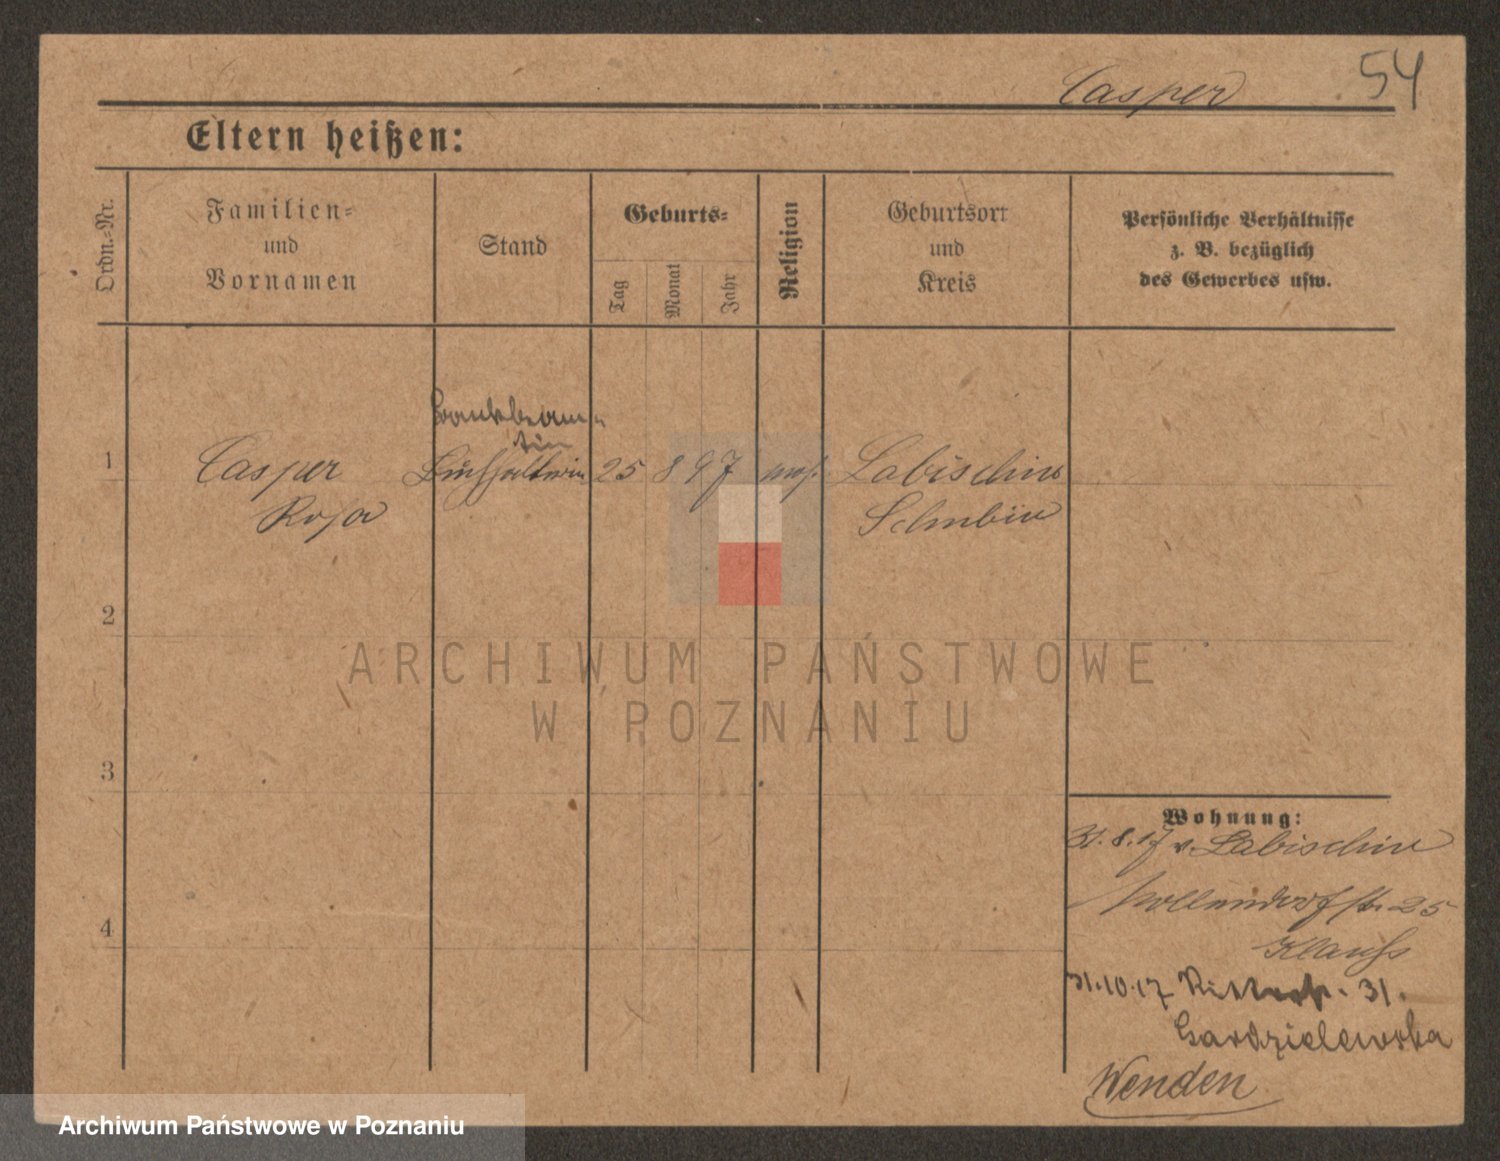 Casper 54
Eltern heißen:
Ordn.-Nr.
Familien-
und
Vornamen
Stand
Geburts-
Tag
Monat
Jahr
Religion
Geburtsort
und
Kreis
Persönliche Verhältnisse
z. B. bezüglich
des Gewerbes usw.
Bankbeam-
tin
1 Casper Buchhalterin 25 8 97 mos. Labischin
Rosa Schubin
2
3
4
Wohnung:
31.8.17 v. Labischin
Mollendorfstr. 25
Klauss
31.10.17 Ritterstr. 31.
Gardzielewska
Wenden
ARCHIWUM PAŃSTWOWE
W POZNANIU
Archiwum Państwowe w Poznaniu